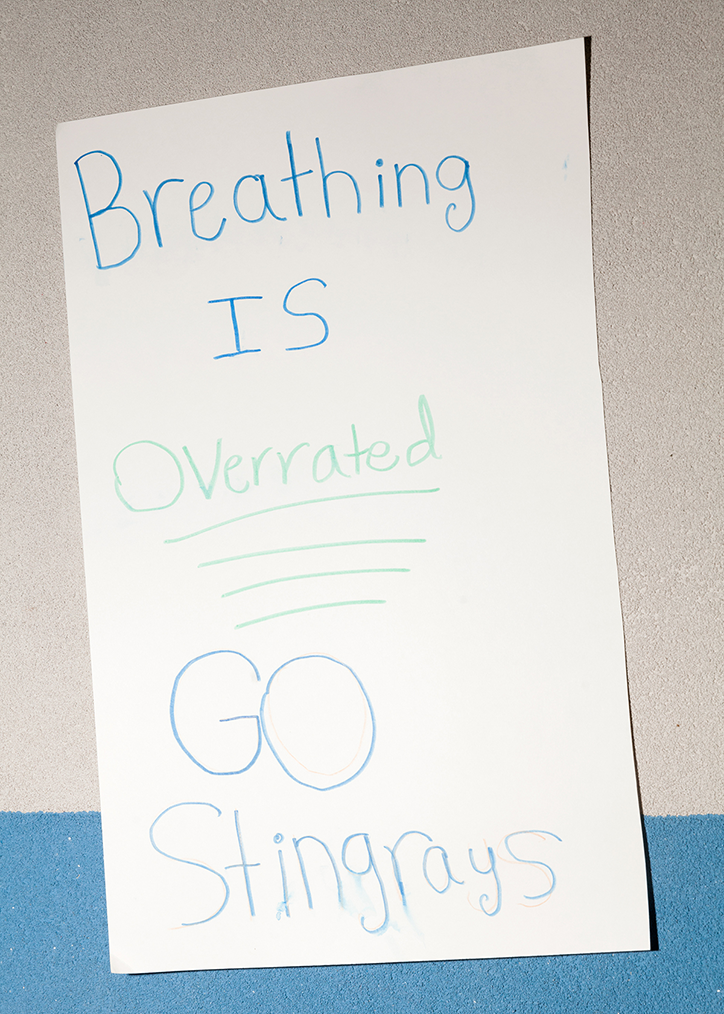 Breathing
IS
Overrated
GO
Stingrays